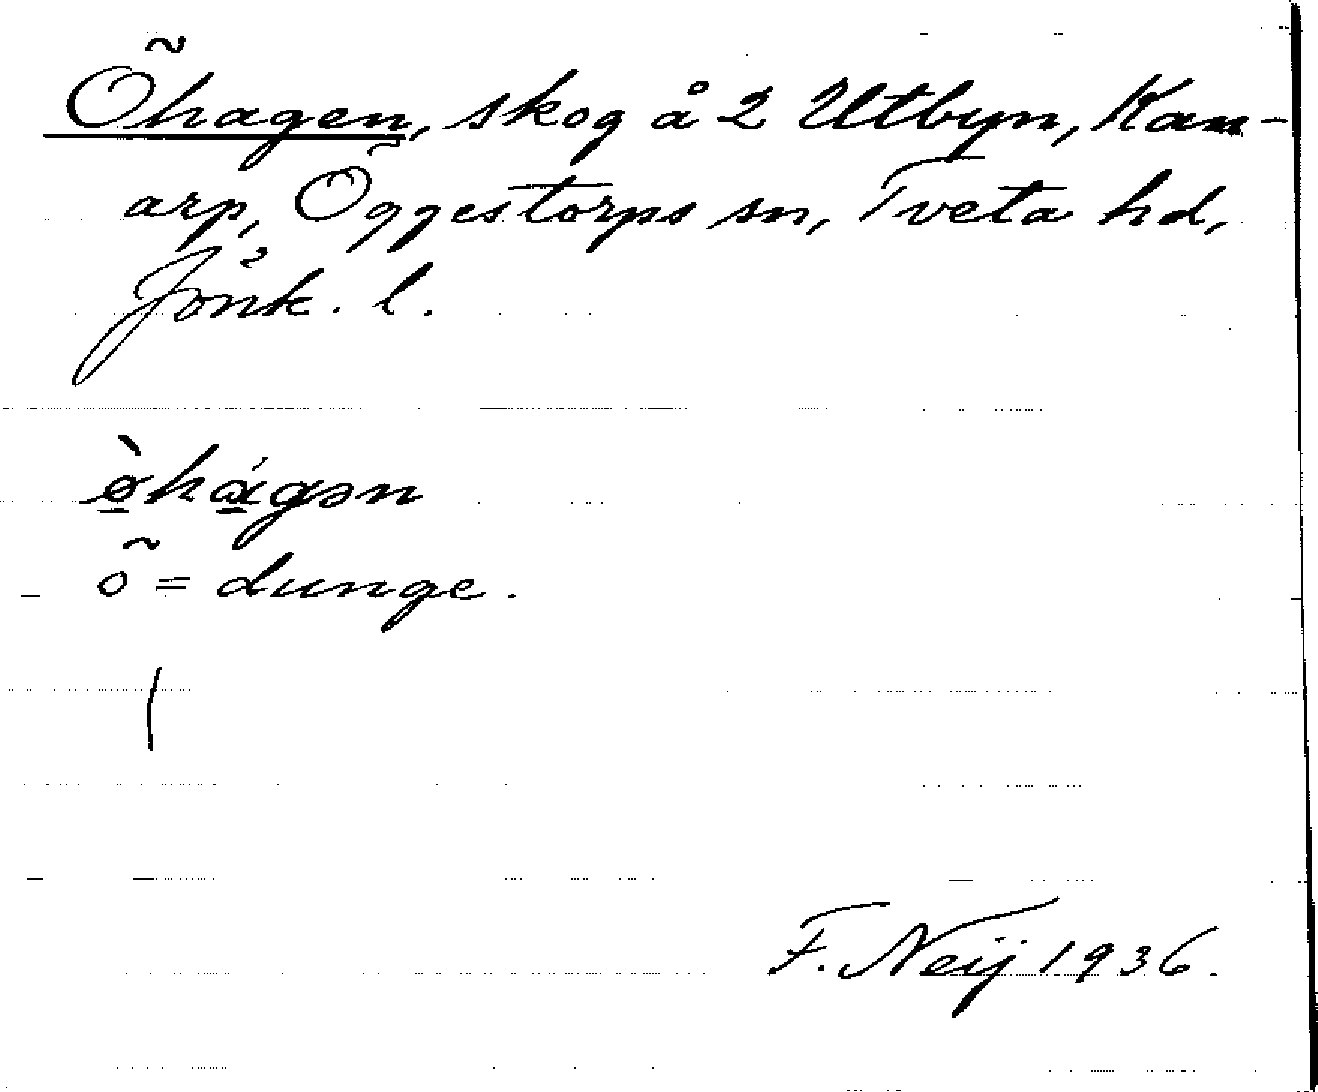 Öhagen, skog å 2 Utbyn, Kam-
arp, Öggestorps sn, Tveta hd,
Jönk. l.
ø̀hɑ́gən
ö = dunge.
F. Neij 1936.